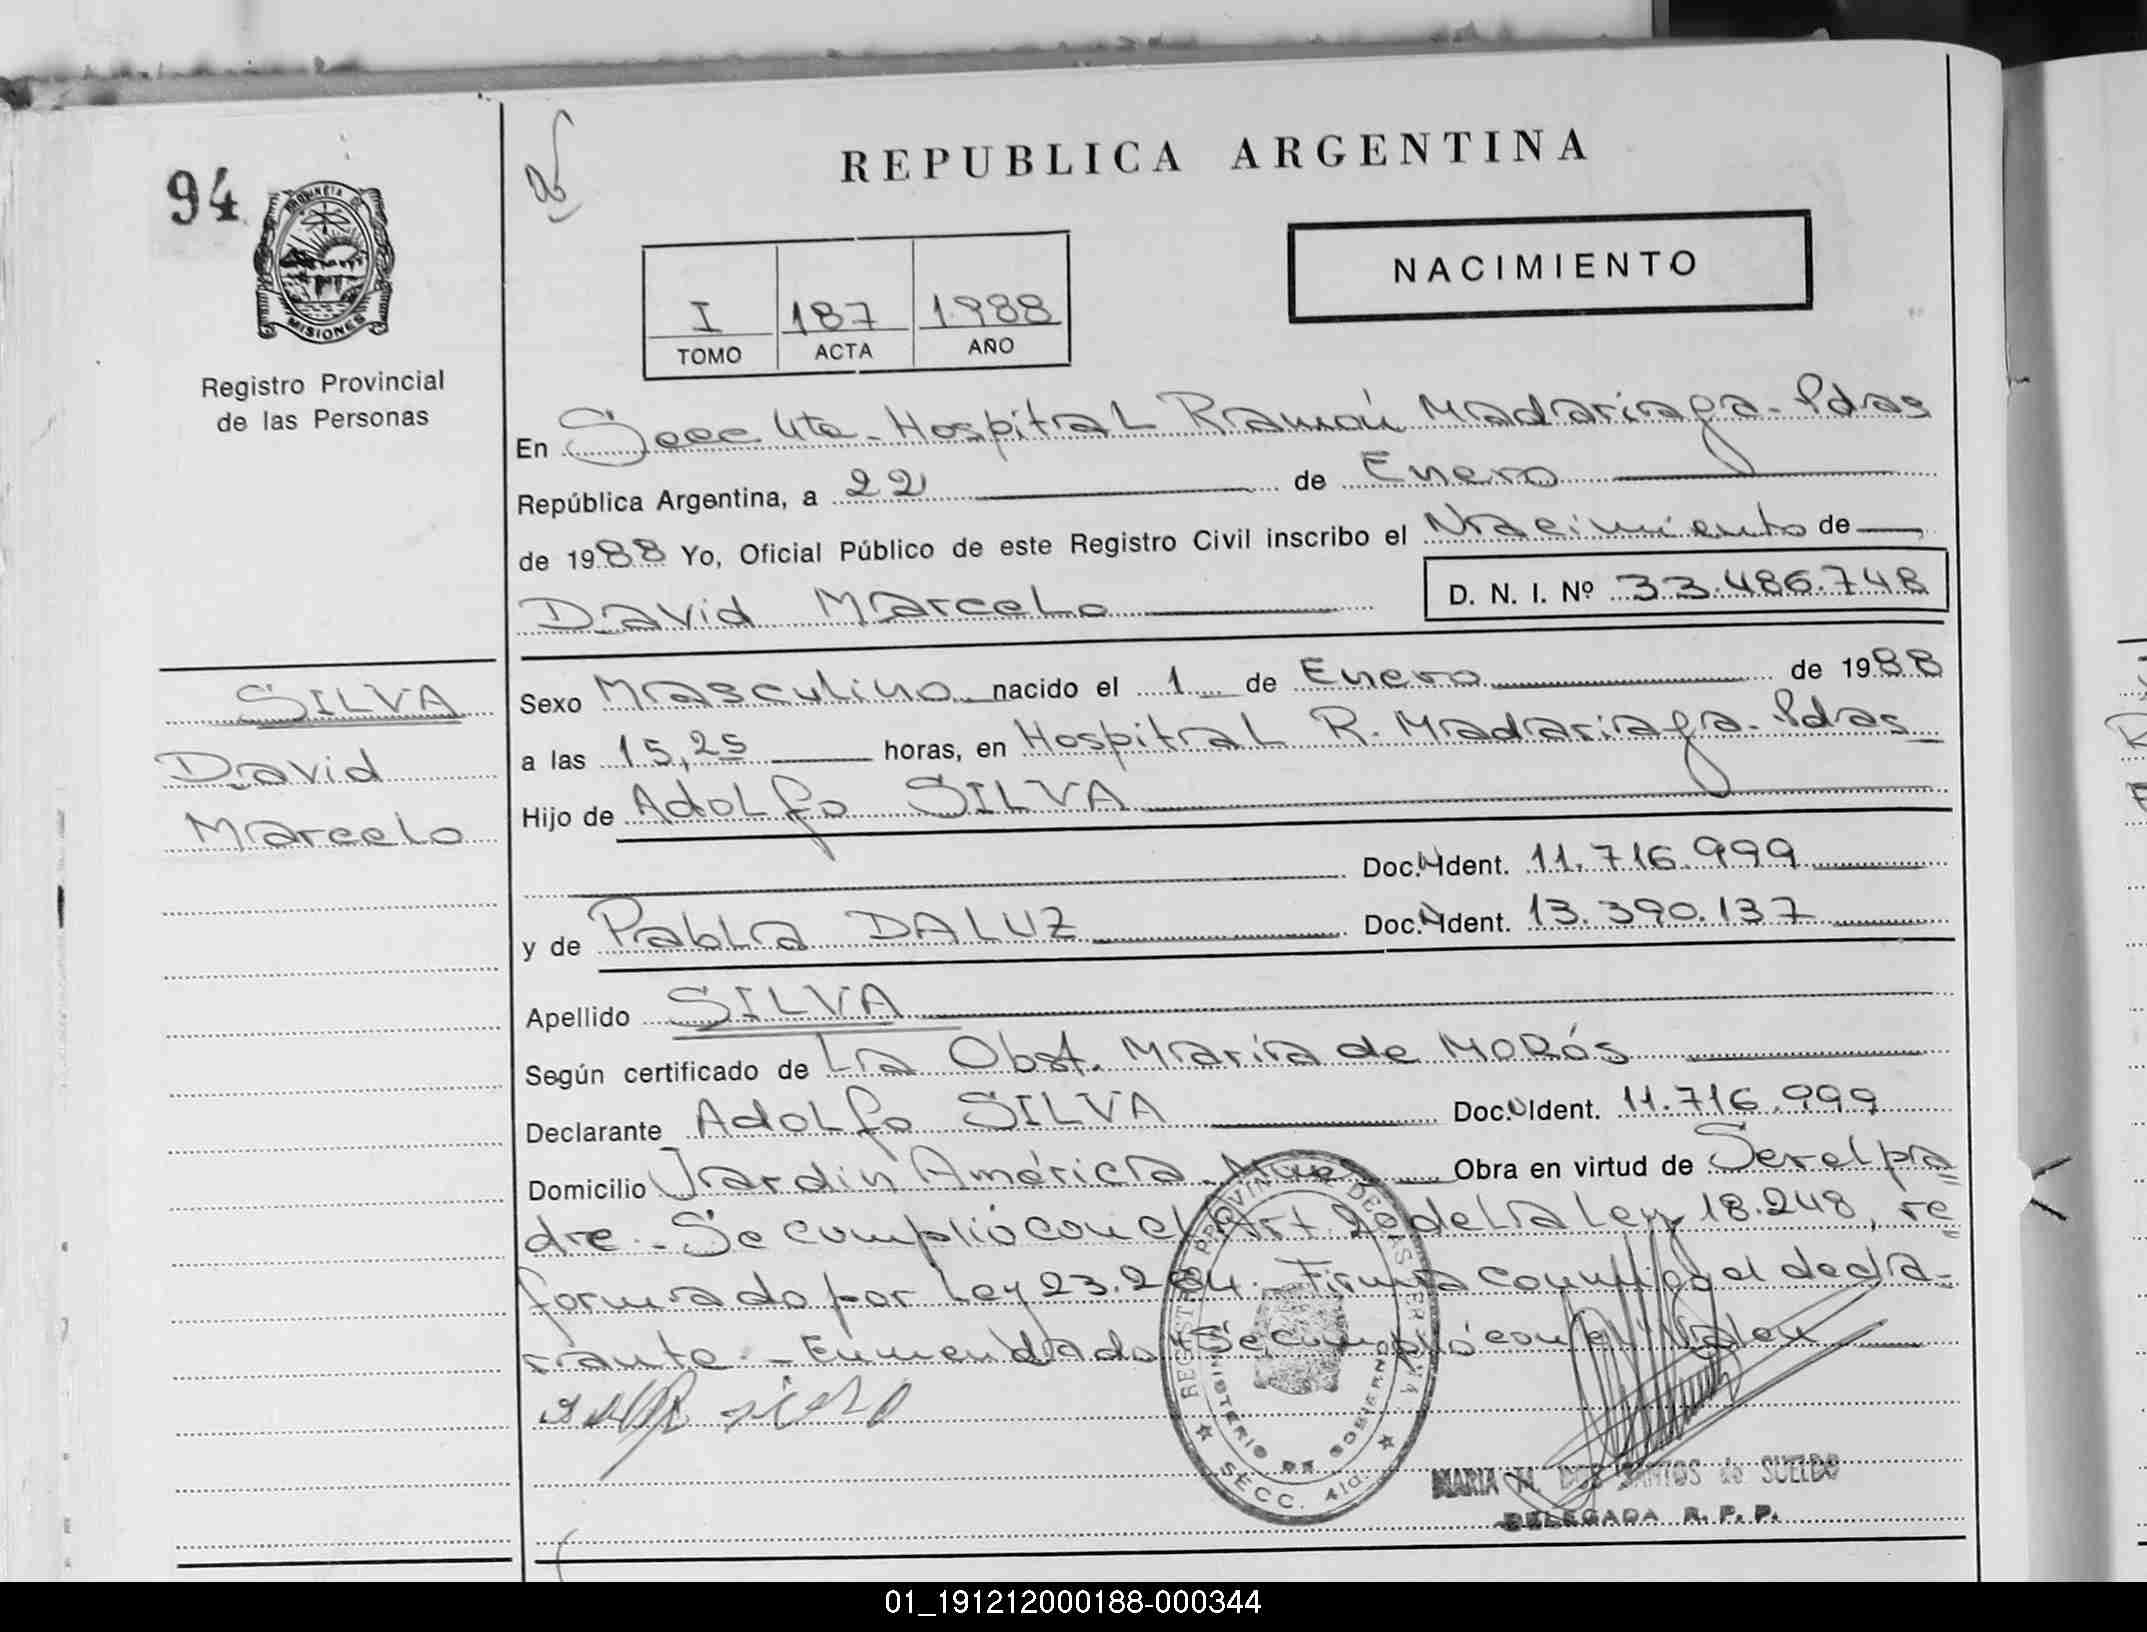 94
PROVINCIA DE
MISIONES
Registro Provincial
de las Personas
SILVA
David
Marcelo
REPUBLICA ARGENTINA
NACIMIENTO
I 187 1988
TOMO ACTA AÑO
En Secc 4ta - Hospital Ramón Madariaga - Pdas
República Argentina, a 22 de Enero
de 1988 Yo, Oficial Público de este Registro Civil inscribo el Nacimiento de
David Marcelo D. N. I. Nº 33.486.748
Sexo Masculino nacido el 1 de Enero de 1988
a las 15,25 horas, en Hospital R. Madariaga - Pdas
Hijo de Adolfo SILVA
Doc. Ident. 11.716.999
y de Pabla DALUZ Doc. Ident. 13.390.137
Apellido SILVA
Según certificado de La Obst. María de MORÓS
Declarante Adolfo SILVA Doc. Ident. 11.716.999
Domicilio Jardín América - Mnes Obra en virtud de Ser el pa
dre - Se cumplió con el Art de la Ley 18.248, re
formado por Ley 23.264. Firma conmigo el decla-
rante. - Enmendado "Se cumplió con el" Vale
REGISTRO PROVINCIAL DE LAS PERSONAS
MINISTERIO DE GOBIERNO
SECC. 4ta.
MARIA M. DOS SANTOS de SUELDO
DELEGADA R. P. P.
01_191212000188-000344